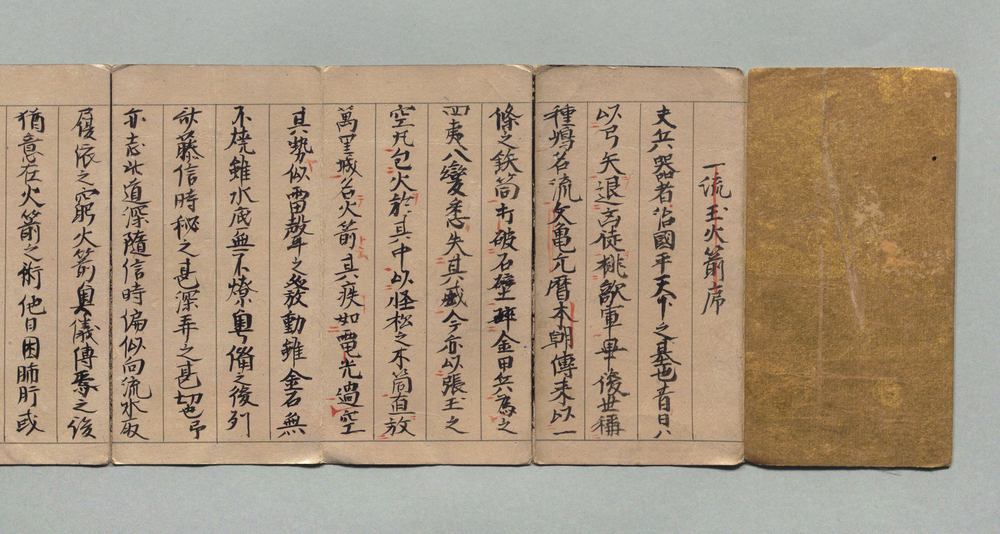 一流玉火箭序
夫兵器者治國平天下之基也昔日八
以弓矢退古徒桃敵軍畢後世稱
種嶋名流久亀元暦本朝傳来以一
條之鉄筒打破石壁砕金甲兵為之
四夷八變悉失其威今亦以張玉之
空丸包火於其中以怪松之木筒直放
萬里城名火箭其疾如電光過空
其勢似雷聲之發動雖金石無
不燒雖水底無不燎粤備之後列
藤信時秘之甚深弄之甚切也予
亦志此道深隨信時偏似向流水取
履依之窮火箭奥儀傳焉之後
猶意在火箭之術他日困肺肝或